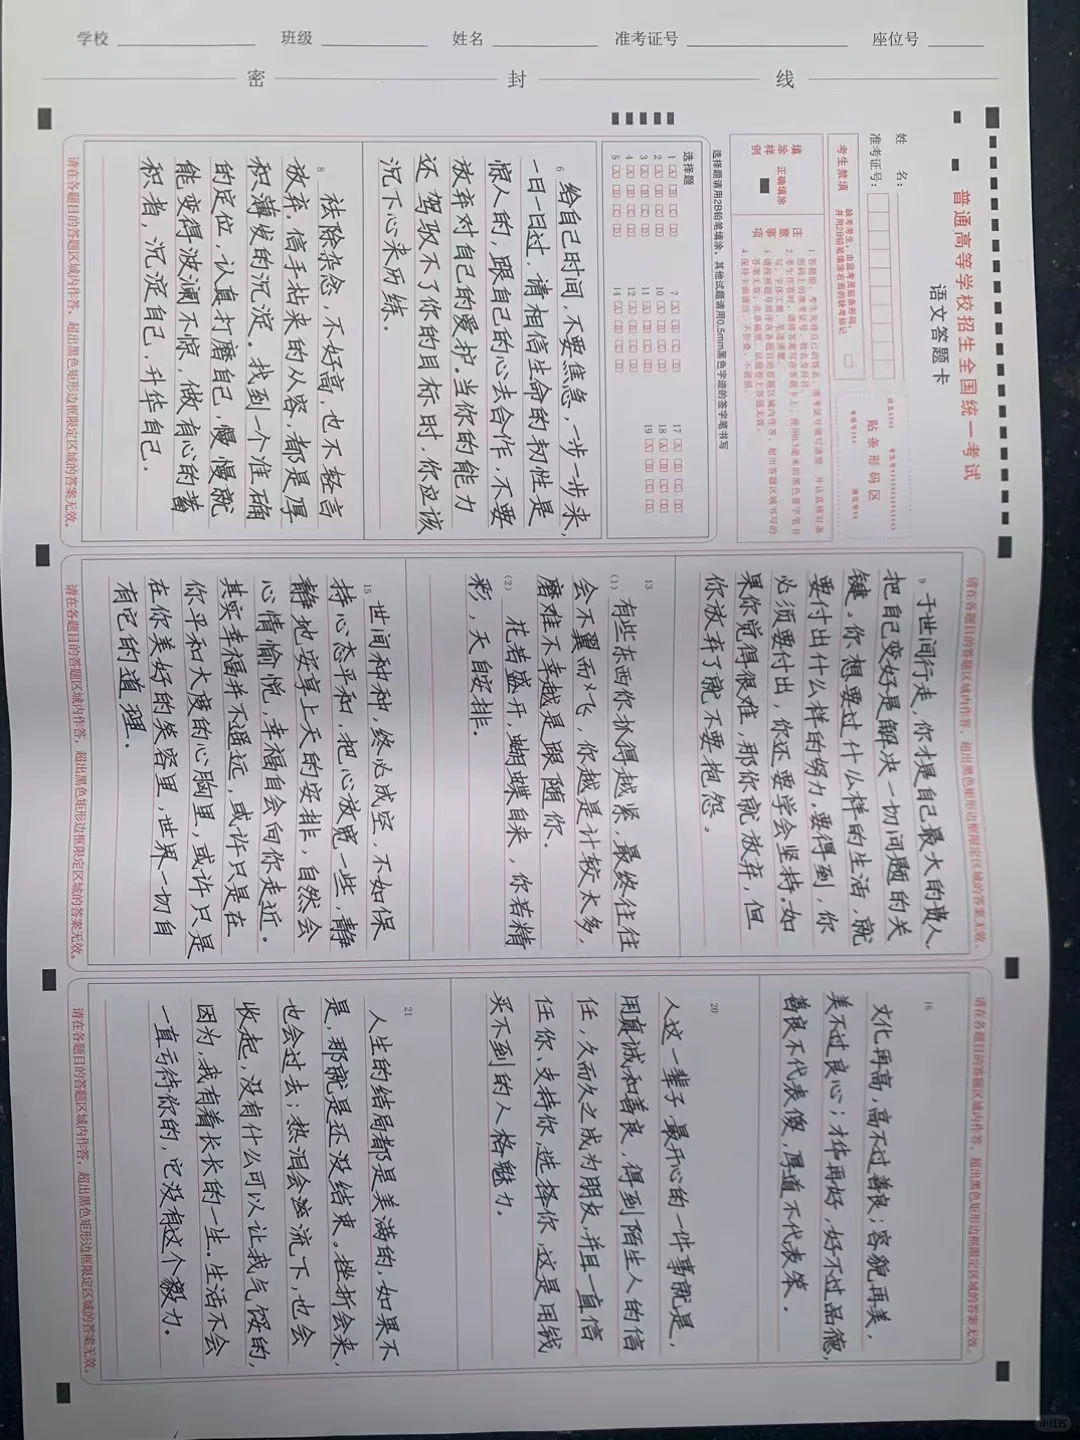 学校 班级 姓名 准考证号 座位号
密 封 线
普通高等学校招生全国统一考试
语文答题卡
姓 名：
准考证号：
贴条形码区
考生禁填
缺考考生，由监考员贴条形码，
并用2B铅笔填涂右面的缺考标记
填涂样例
正确填涂
注意事项
选择题请用2B铅笔填涂，其他试题请用0.5mm黑色字迹的签字笔书写
选择题
1 [A] [B] [C] [D]
2 [A] [B] [C] [D]
3 [A] [B] [C] [D]
4 [A] [B] [C] [D]
5 [A] [B] [C] [D]
7 [A] [B] [C] [D]
10 [A] [B] [C] [D]
11 [A] [B] [C] [D]
12 [A] [B] [C] [D]
14 [A] [B] [C] [D]
17 [A] [B] [C] [D]
18 [A] [B] [C] [D]
19 [A] [B] [C] [D]
6 给自己时间，不要焦急，一步一步来，
一日一日过，请相信生命的韧性是
惊人的，跟自己的心去合作，不要
放弃对自己的爱护。当你的能力
还驾驭不了你的目标时，你应该
沉下心来历练。
8 祛除杂念，不好高，也不轻言
放弃，信手拈来的从容，都是厚
积薄发的沉淀。找到一个准确
的定位，认真打磨自己，慢慢就
能变得波澜不惊，做有心的蓄
积者，沉淀自己，升华自己．
请在各题目的答题区域内作答，超出黑色矩形边框限定区域的答案无效。
请在各题目的答题区域内作答，超出黑色矩形边框限定区域的答案无效。
9 于世间行走，你才是自己最大的贵人，
把自己变好是解决一切问题的关
键．你想要过什么样的生活，就
要付出什么样的努力．要得到，你
必须要付出，你还要学会坚持．如
果你觉得很难，那你就放弃，但
你放弃了就不要抱怨。
13
(1) 有些东西你抓得越紧，最终往往
会不翼而飞，你越是计较太多，
磨难不幸越是跟随你．
(2) 花若盛开，蝴蝶自来，你若精
彩，天自安排．
15 世间种种，终必成空，不如保
持心态平和，把心放宽一些，静
静地安享上天的安排，自然会
心情愉悦，幸福自会向你走近。
其实幸福并不遥远，或许只是在
你平和大度的心胸里，或许只是
在你美好的笑容里，世界一切自
有它的道理．
请在各题目的答题区域内作答，超出黑色矩形边框限定区域的答案无效。
请在各题目的答题区域内作答，超出黑色矩形边框限定区域的答案无效。
16
文化再高，高不过善良；容貌再美，
美不过良心；才华再好，好不过品德，
善良不代表傻，厚道不代表笨．
20
人这一辈子，最开心的一件事就是，
用真诚和善良，得到陌生人的信
任，久而久之成为朋友，并且一直信
任你、支持你，选择你，这是用钱
买不到的人格魅力．
21
人生的结局都是美满的，如果不
是，那就是还没结束．挫折会来，
也会过去；热泪会流下，也会
收起，没有什么可以让我气馁的，
因为，我有着长长的一生．生活不会
一直亏待你的，它没有这个毅力．
请在各题目的答题区域内作答，超出黑色矩形边框限定区域的答案无效。